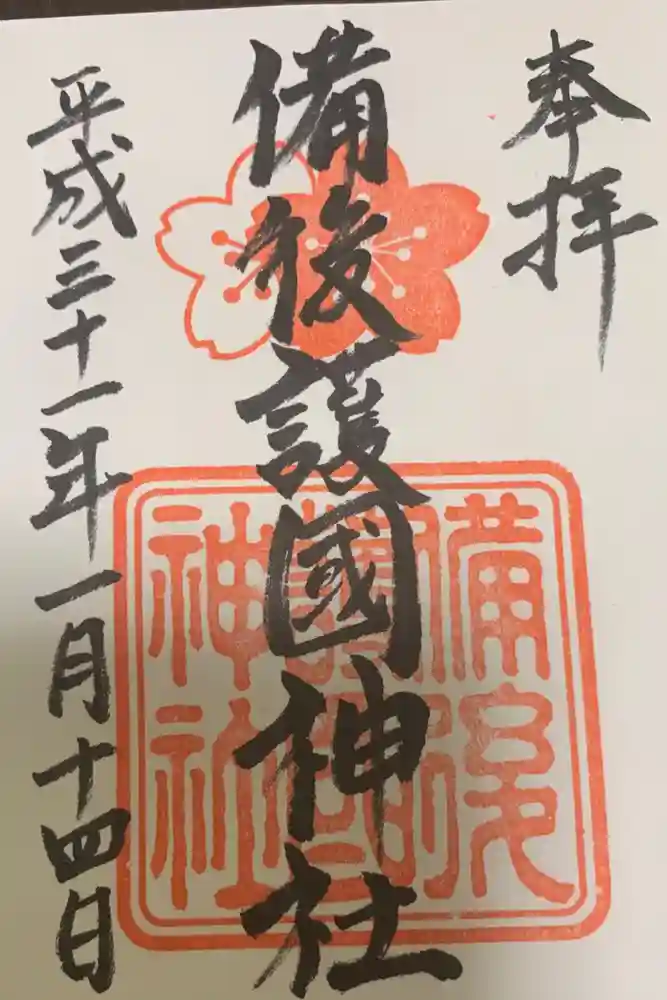 奉拝
備後護國神社
備後
護國
神社
平成三十一年一月十四日